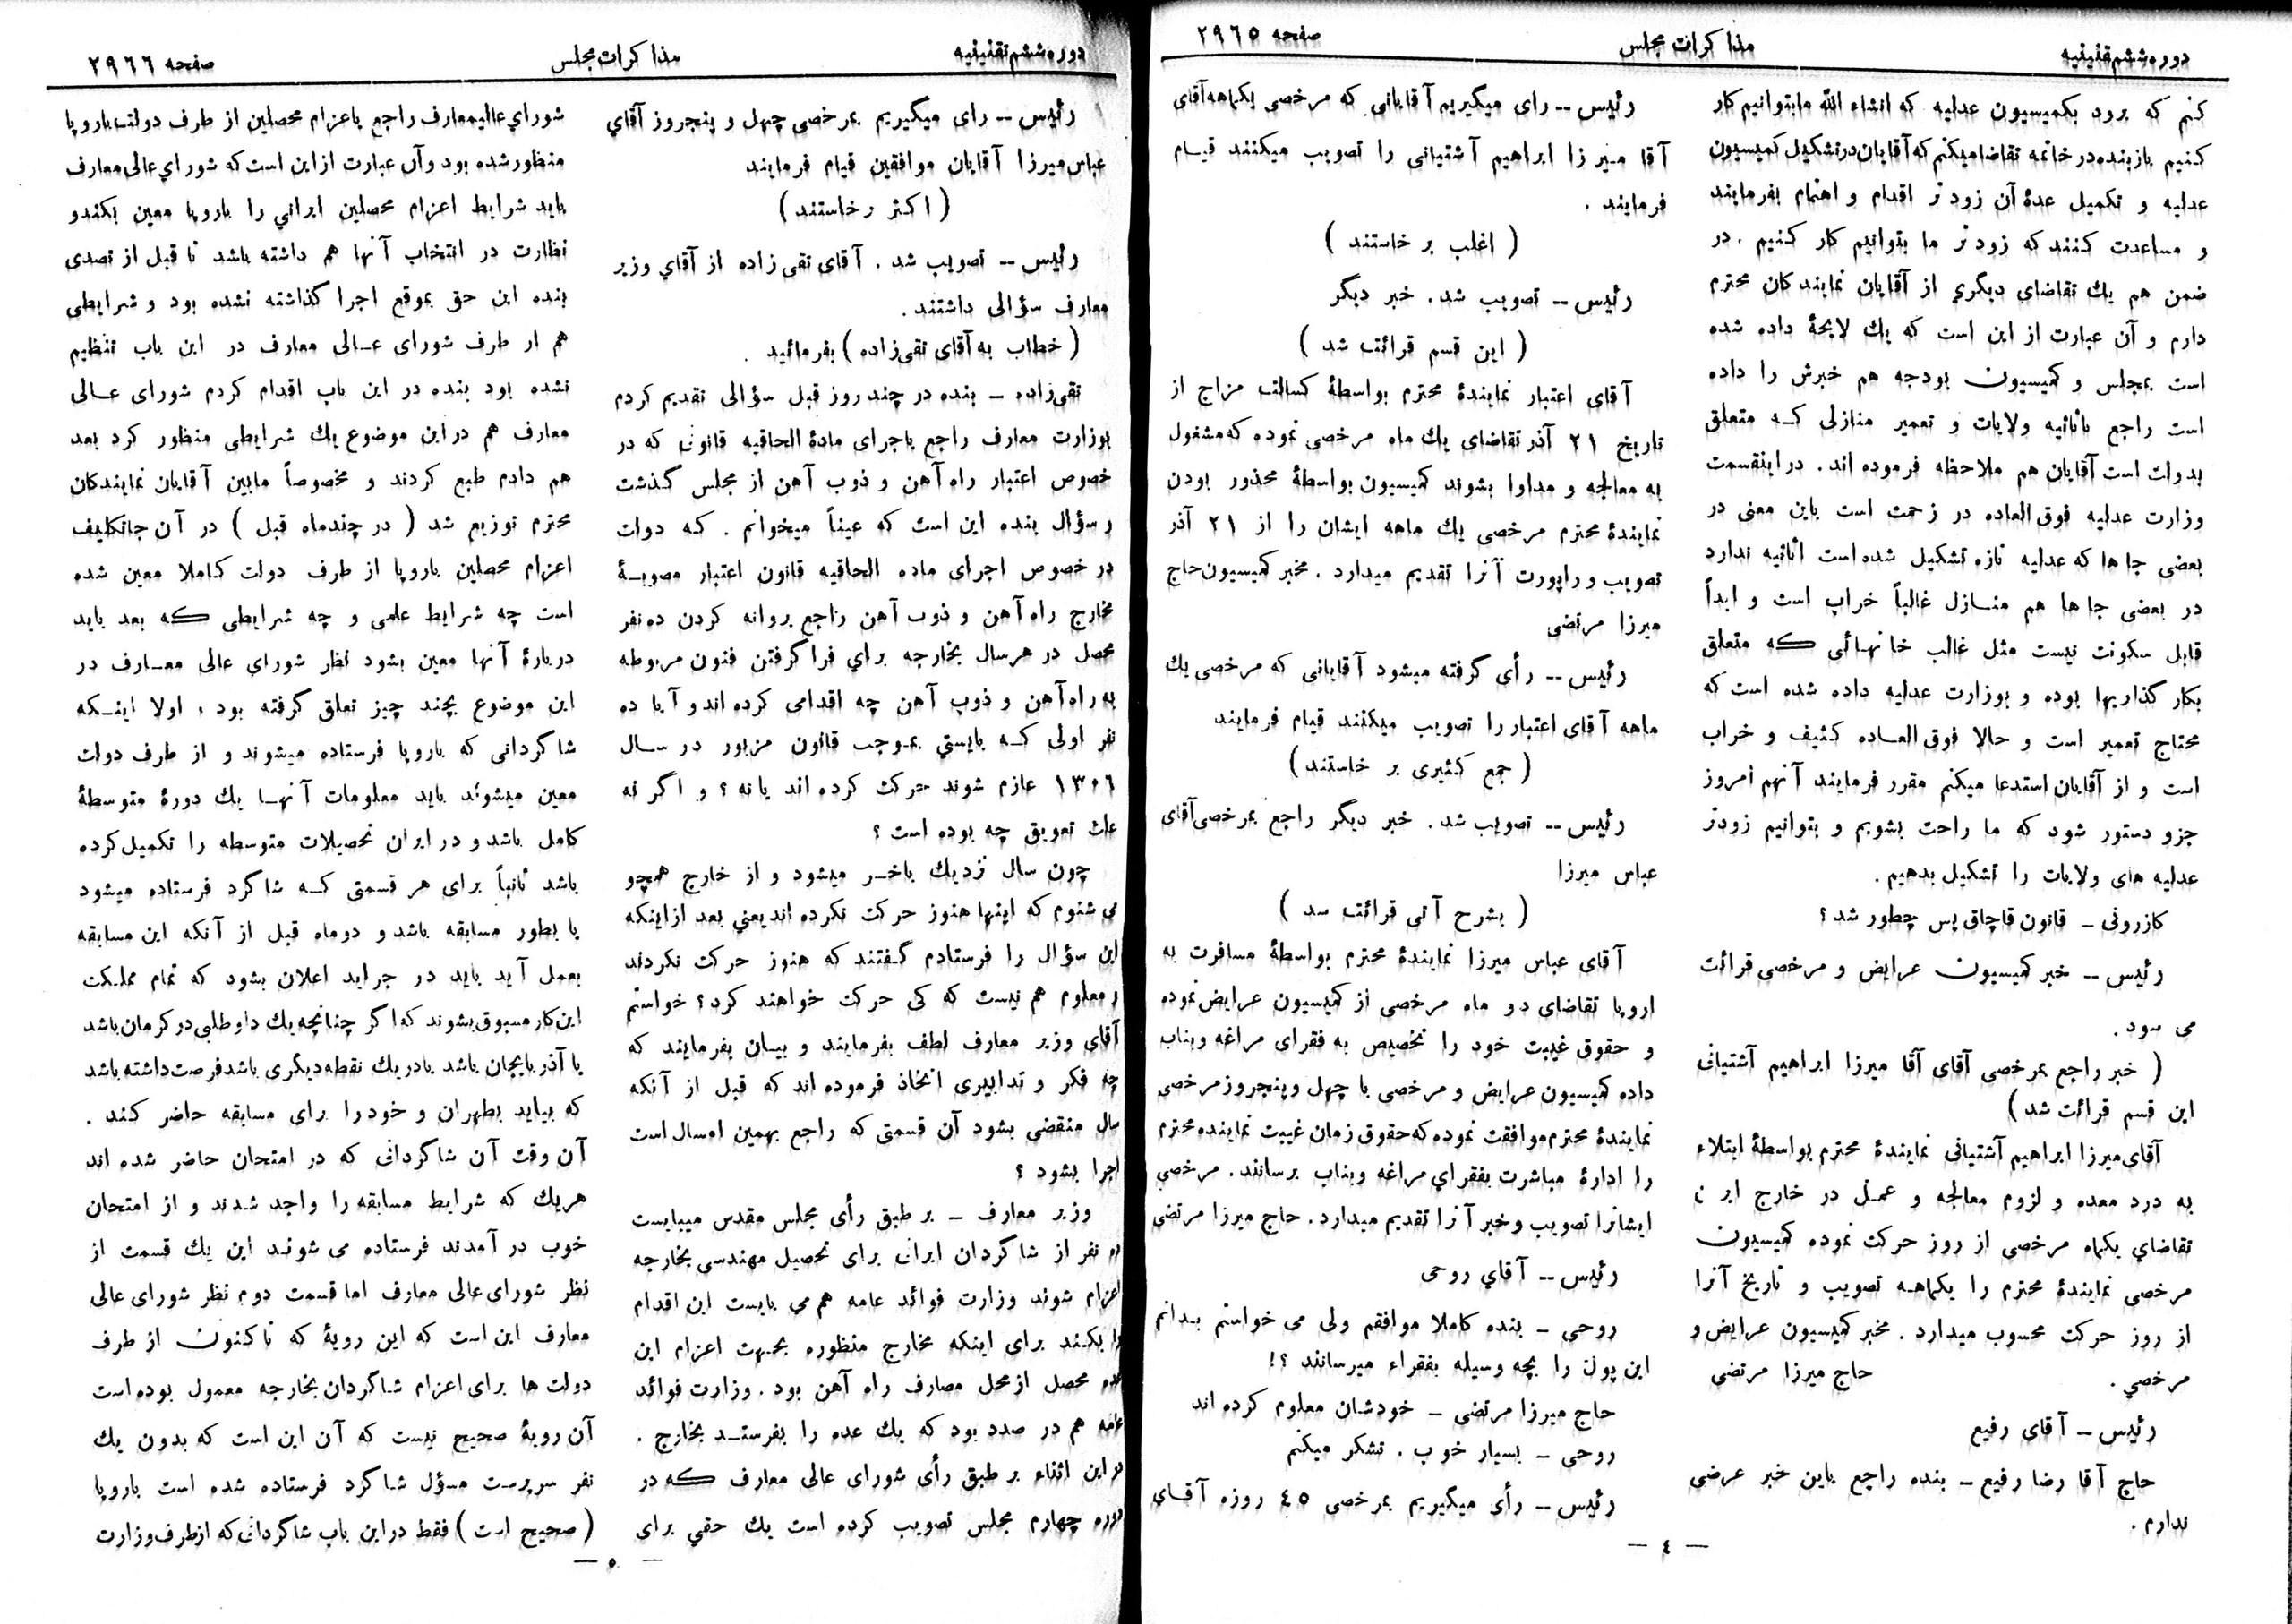 دوره ششم تقنینیه
مذاکرات مجلس
صفحه ۲۹۶۵
کنم که برود بکمیسیون عدلیه که انشاء الله مابتوانیم کار
کنیم بازبنده در خاتمه تقاضا میکنم که آقایان در تشکیل کمیسیون
عدلیه و تکمیل عدهٔ آن زود تر اقدام و اهتمام بفرمایند
و مساعدت کنند که زود تر ما بتوانیم کار کنیم . در
ضمن هم یك تقاضای دیگری از آقایان نمایندکان محترم
دارم و آن عبارت از این است که یك لایحهٔ داده شده
است بمجلس و کمیسیون بودجه هم خبرش را داده
است راجع باثاثیه ولایات و تعمیر منازلی کـه متعلق
بدولت است آقایان هم ملاحظه فرموده اند . در اینقسمت
وزارت عدلیه فوق العاده در زحمت است باین معنی در
بعضی جا ها که عدلیه تازه تشکیل شده است اثاثیه ندارد
در بعضی جا ها هم منـازل غالباً خراب است و ابداً
قابل سکونت نیست مثل غالب خانهـائی که متعلق
بکار گذاریها بوده و بوزارت عدلیه داده شده است که
محتاج تعمیر است و حالا فوق العـاده کثیف و خراب
است و از آقایان استدعا میکنم مقرر فرمایند آنهم امروز
جزو دستور شود که ما راحت بشویم و بتوانیم زودتر
عدلیه های ولایات را تشکیل بدهیم .
کازرونی ـ قانون قاچاق پس چطور شد ؟
رئیس -- خبر کمیسیون عرایض و مرخصی قرائت
می شود .
( خبر راجع بمرخصی آقای آقا میرزا ابراهیم آشتیانی
این قسم قرائت شد )
آقای میرزا ابراهیم آشتیانی نمایندهٔ محترم بواسطهٔ ابتلاء
به درد معده و لزوم معالجه و عمـل در خارج ایر ن
تقاضای یکماه مرخصی از روز حرکت نموده کمیسیون
مرخصی نمایندهٔ محترم را یکماهـه تصویب و تاریخ آنرا
از روز حرکت محسوب میدارد . مخبر کمیسیون عرایض و
مرخصی . حاج میرزا مرتضی
رئیس ـ آقای رفیع
حاج آقا رضا رفیع ـ بنده راجع باین خبر عرضی
ندارم .
رئیس -- رای میگیریم آقایانی که مرخصی یکماهه آقای
آقا میرزا ابراهیم آشتیانی را تصویب میکنند قیـام
فرمایند .
( اغلب بر خاستند )
رئیس -- تصویب شد . خبر دیگر
( این قسم قرائت شد )
آقای اعتبار نمایندهٔ محترم بواسطهٔ کسالت مزاج از
تاریخ ۲۱ آذر تقاضای یك ماه مرخصی نموده که مشغول
به معالجه و مداوا بشوند کمیسیون بواسطهٔ محذور بودن
نمایندهٔ محترم مرخصی یك ماهه ایشان را از ۲۱ آذر
تصویب و راپورت آنرا تقدیم میدارد . مخبر کمیسیون حاج
میرزا مرتضی
رئیس -- رأی گرفته میشود آقایانی که مرخصی یك
ماهه آقای اعتبار را تصویب میکنند قیام فرمایند
( جمع کثیری بر خاستند )
رئیس -- تصویب شد . خبر دیگر راجع بمرخصی آقای
عباس میرزا
( بشرح آتی قرائت شد )
آقای عباس میرزا نمایندهٔ محترم بواسطهٔ مسافرت به
اروپا تقاضای دو ماه مرخصی از کمیسیون عرایض نموده
و حقوق غیبت خود را تخصیص به فقرای مراغه وبناب
داده کمیسیون عرایض و مرخصی با چهل و پنجروز مرخصی
نمایندهٔ محترم موافقت نموده که حقوق زمان غیبت نماینده محترم
را ادارهٔ مباشرت بفقرای مراغه وبناب برسانند . مرخصی
ایشانرا تصویب و خبر آنرا تقدیم میدارد . حاج میرزا مرتضی
رئیس -- آقای روحی
روحی ـ بنده کاملا موافقم ولی می خواستم بـدانم
این پول را بچه وسیله بفقراء میرسانند ؟!
حاج میرزا مرتضی ـ خودشان معلوم کرده اند
روحی ـ بسیار خوب . تشکر میکنم
رئیس -- رأی میگیریم بمرخصی ٤٥ روزه آقـای
— ٤ —
دوره ششم تقنینیه
مذاکرات مجلس
صفحه ۲۹۶۶
رئیس -- رای میگیریم بمرخصی چهل و پنجروز آقای
عباس میرزا آقایان موافقین قیام فرمایند
( اکثر رخاستند )
رئیس -- تصویب شد . آقای تقی زاده از آقای وزیر
معارف سؤالی داشتند .
( خطاب به آقای تقی زاده ) بفرمائید .
تقی زاده ـ بنده در چند روز قبل سؤالی تقدیم کردم
بوزارت معارف راجع باجرای مادهٔ الحاقیه قانونی که در
خصوص اعتبار راه آهن و ذوب آهن از مجلس گذشت
و سؤال بنده این است که عیناً میخوانم . کـه دولت
در خصوص اجرای ماده الحاقیه قانون اعتبار مصوبـهٔ
مخارج راه آهن و ذوب آهن راجع بروانه کردن ده نفر
محصل در هر سال بخارجه برای فرا گرفتن فنون مربوطه
به راه آهن و ذوب آهن چه اقدامی کرده اند و آیا ده
نفر اولی کـه بایستی بموجب قانون مزبور در سـال
۱۳۰۶ عازم شوند حرکت کرده اند یا نه ؟ و اگر نه
علت تعویق چه بوده است ؟
چون سال نزدیك باخـر میشود و از خارج همچو
می شنوم که اینها هنوز حرکت نکرده اند یعنی بعد از اینکه
این سؤال را فرستادم گفتند که هنوز حرکت نکردند
و معلوم هم نیست که کی حرکت خواهند کرد ؟ خواستم
آقای وزیر معارف لطف بفرمایند و بیـان بفرمایند که
چه فکر و تدابیری اتخاذ فرموده اند که قبل از آنکه
سال منقضی بشود آن قسمتی که راجع بهمین امسال است
اجرا بشود ؟
وزیر معارف ـ بر طبق رأی مجلس مقدس میبایست
ده نفر از شاگردان ایرانی برای تحصیل مهندسی بخارجه
اعزام شوند وزارت فوائد عامه هم می بایست این اقدام
را بکـند برای اینکه مخارج منظوره بجهت اعزام این
عده محصل از محل مصارف راه آهن بود . وزارت فوائد
عامه هم در صدد بود که یك عده را بفرستـد بخارج .
در این اثناء بر طبق رأی شورای عالی معارف که در
دوره چهارم مجلس تصویب کرده است یك حقی برای
شورای عالیمعارف راجع باعزام محصلین از طرف دولت باروپا
منظور شده بود وآن عبارت از این است که شورای عالی معارف
باید شرایط اعزام محصلین ایرانی را باروپا معین بکندو
نظارت در انتخاب آنها هم داشته باشد تا قبل از تصدی
بنده این حق بموقع اجرا گذاشته نشده بود و شرایطی
هم از طرف شورای عـالی معارف در این باب تنظیم
نشده بود بنده در این باب اقدام کردم شورای عـالی
معارف هم در این موضوع یك شرایطی منظور کرد بعد
هم دادم طبع کردند و مخصوصاً مابین آقایان نمایندکان
محترم توزیع شد ( در چندماه قبل ) در آن جاتکلیف
اعزام محصلین باروپا از طرف دولت کـاملا معین شده
است چه شرایط علمی و چه شرایطی که بعد باید
دربارهٔ آنها معین بشود نظر شورای عالی معـارف در
این موضوع بچند چیز تعلق گرفته بود ، اولا اینـکه
شاگردانی که باروپا فرستاده میشوند و از طرف دولت
معین میشوند باید معلومات آنهـا یك دورهٔ متوسطهٔ
کامل باشد و در ایران تحصیلات متوسطه را تکمیل کرده
باشد ثانیاً برای هر قسمتی کـه شاگرد فرستاده میشود
با بطور مسابقه باشد و دوماه قبل از آنکه این مسابقه
بعمل آید باید در جراید اعلان بشود که تمام مملکت
این کار مسبوق بشوند که اگر چنانچه یك داوطلبی در کرمان باشد
یا آذربایجان باشد یا در یك نقطه دیگری باشد فرصت داشته باشد
که بیاید بطهران و خود را برای مسابقه حاضر کند .
آن وقت آن شاگردانی که در امتحان حاضر شده اند
هریك که شرایط مسابقه را واجد شدند و از امتحان
خوب در آمدند فرستاده می شونـد این یك قسمت از
نظر شورای عالی معارف اما قسمت دوم نظر شورای عالی
معارف این است که این رویهٔ که تا کنون از طرف
دولت ها برای اعزام شاگردان بخارجه معمول بوده است
آن رویهٔ صحیح نیست که آن این است که بدون یك
نفر سرپرست مسؤل شاگرد فرستاده شده است باروپا
( صحیح است ) فقط در این باب شاگردانی که از طرف وزارت
— ۵ —